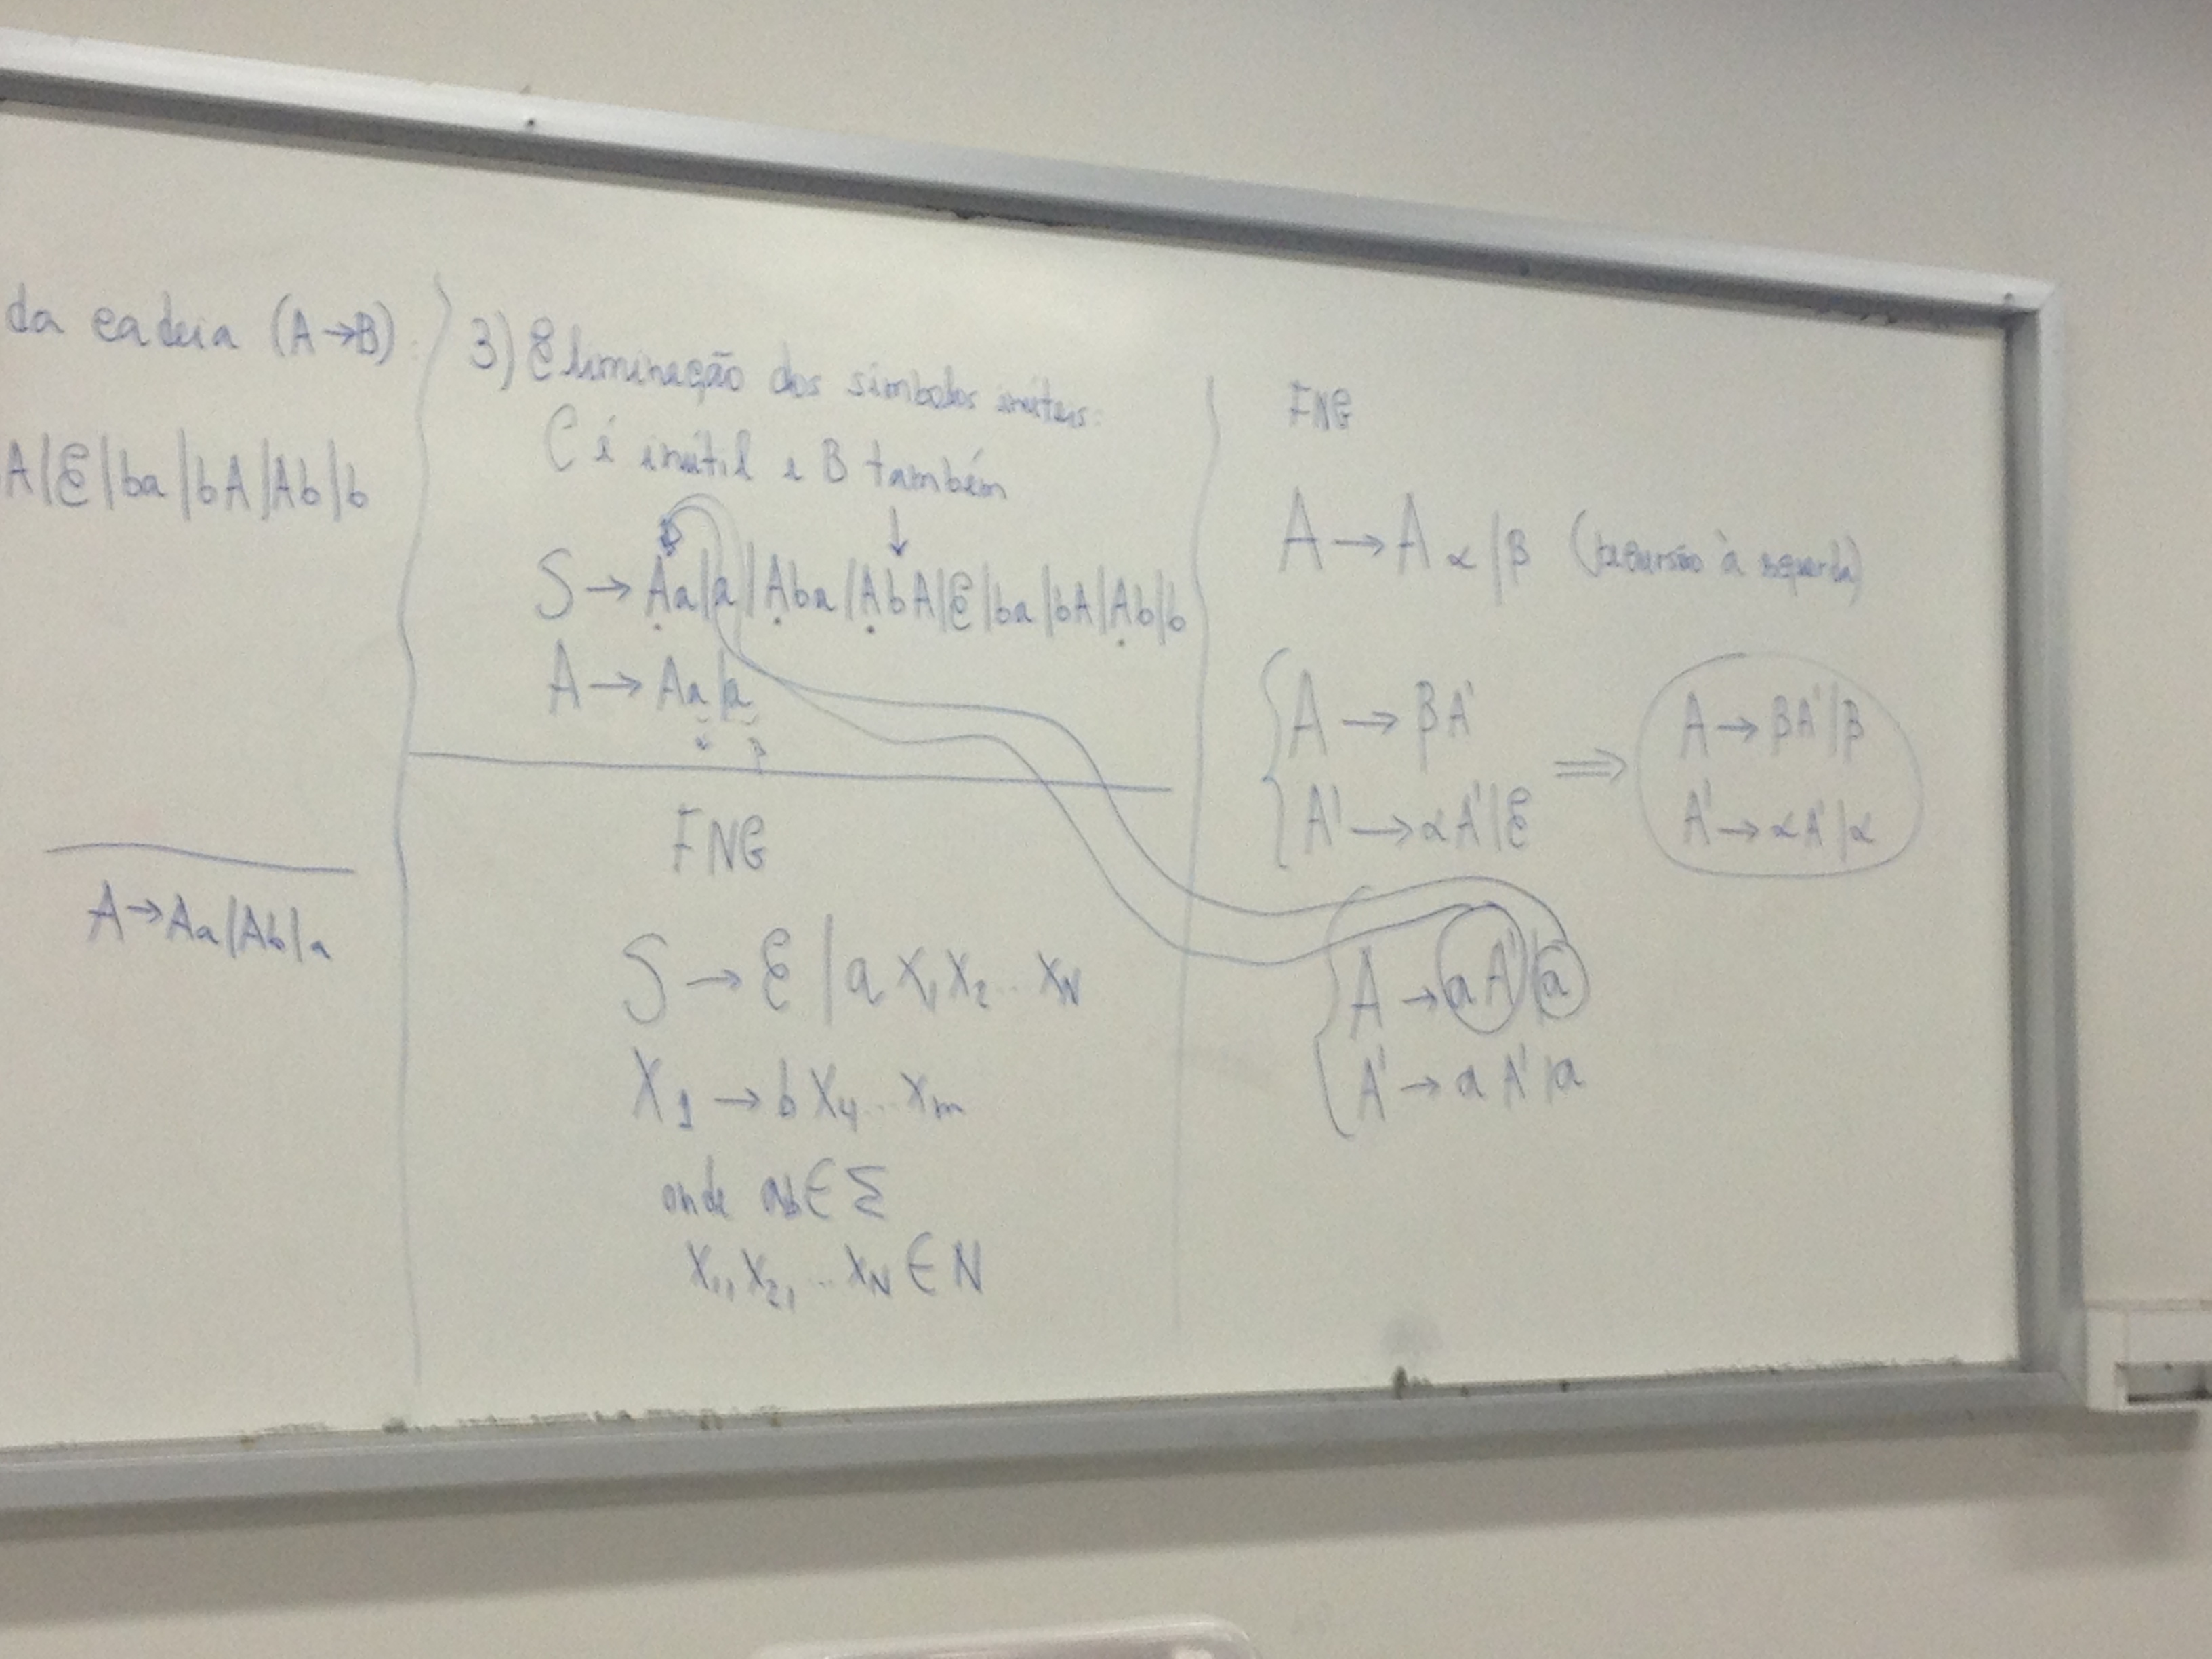 da cadeia (A→B):
A|Ɛ|ba|bA|Ab|b
A→Aa|Ab|a
3) Eliminação dos símbolos inúteis:
C é inútil e B também
S→Aa|a|Aba|AbA|Ɛ|ba|bA|Ab|b
A→Aa|a
α β
FNG
S→Ɛ|a X₁X₂...X_N
X₁→b X₄...X_m
onde a,b∈Σ
X₁, X₂, ...X_N ∈ N
FNG
A→Aα|β (recursão à esquerda)
A→βA'
A'→αA'|Ɛ
⟹
A→βA'|β
A'→αA'|α
A→aA'|a
A'→aA'|a